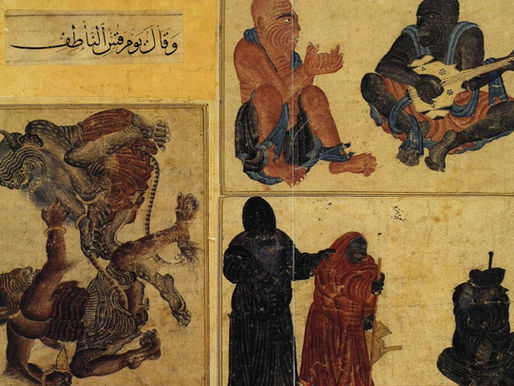 وَقَالَ يَوْمَ قُسِّ النَّاطِفِ